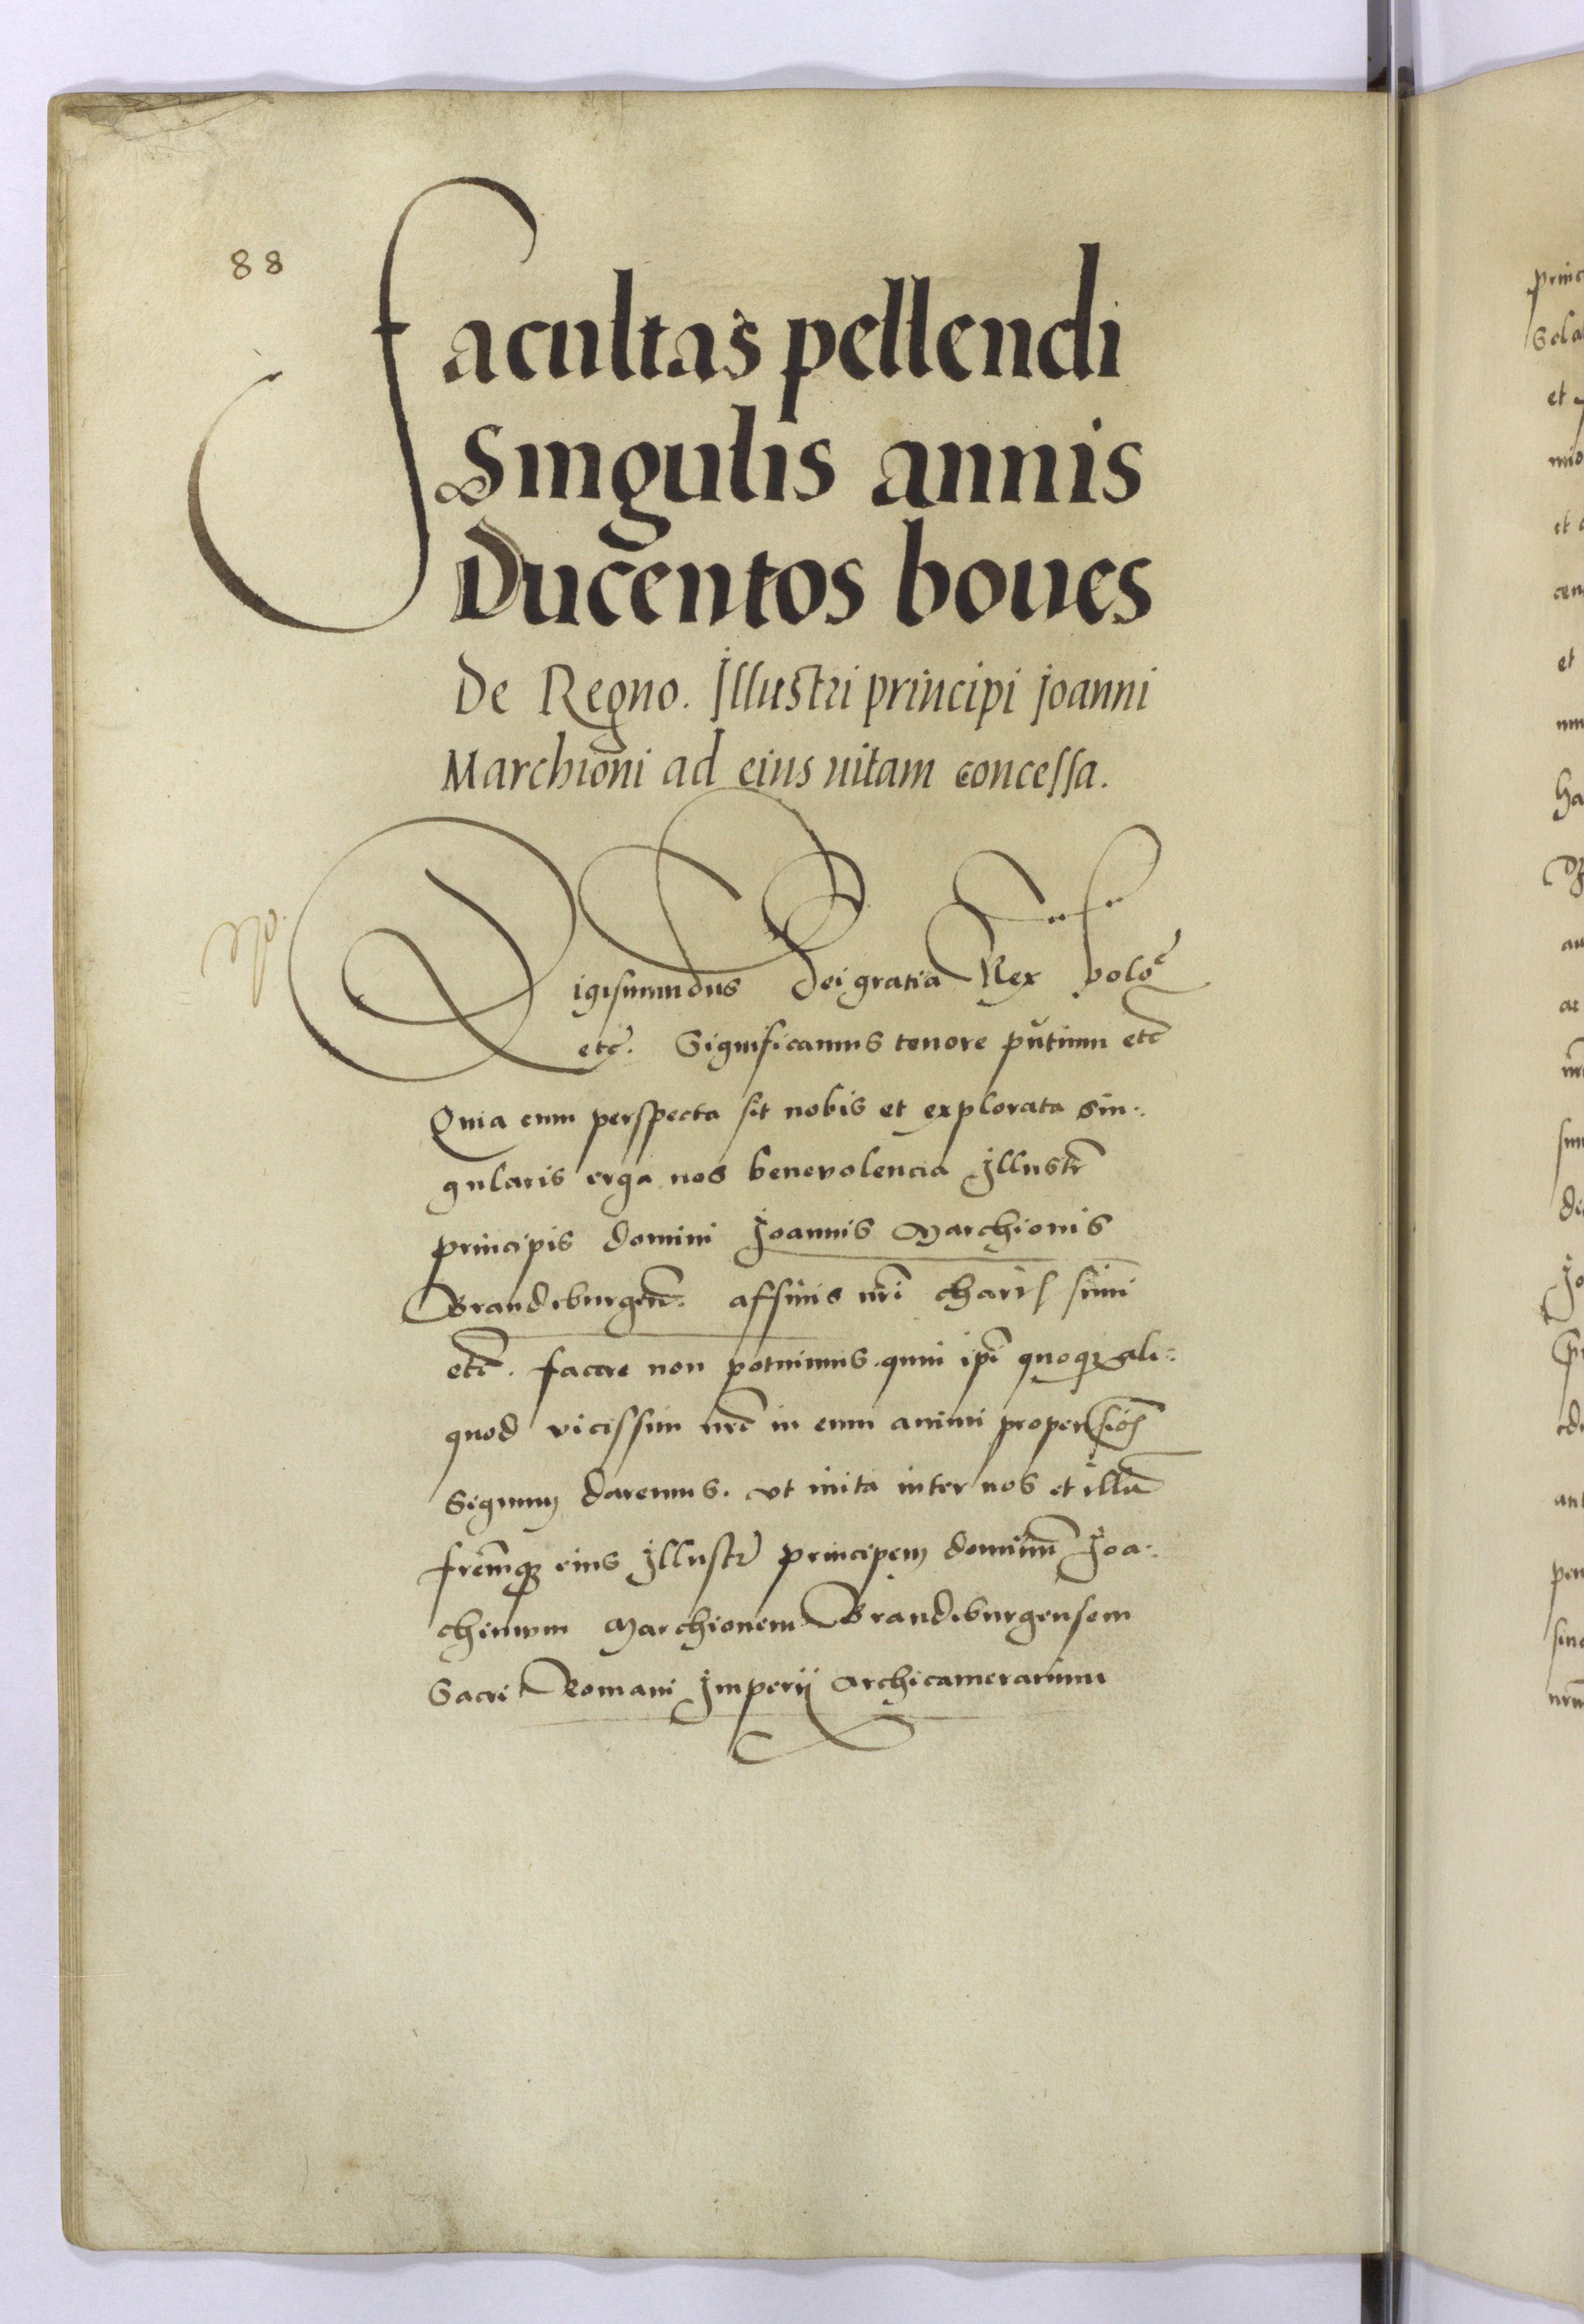 88
Facultas pellendi
Singulis annis
Ducentos boues
De Regno. Illustri principi Joanni
Marchioni ad eius uitam concessa.
Sigismundus Dei gratia Rex polo
etc. Significamus tenore pntium etc
Quia cum perspecta sit nobis et explorata sin-
gularis erga nos benevolencia Illustr
principis domini Joannis Marchionis
Brandeburgen. affinis nri charissimi
etc. facere non potuimus. quin ipi quoq ali-
quod vicissim nre in eum animi propensiois
Signum daremus. vt inita inter nos et illu
fremq eius Illustr principem dominu Joa-
chimum Marchionem Brandeburgensem
Sacri Romani Imperij Archicamerarium